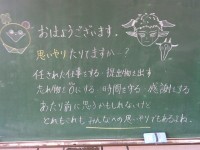 おはようございます。
思いやりたりてますか…?
任された仕事をする 提出物を出す
忘れ物を0にする 時間を守る 感謝する
あたり前に思うかもしれないけど
どれもこれもみんなへの思いやりでもあるよね。